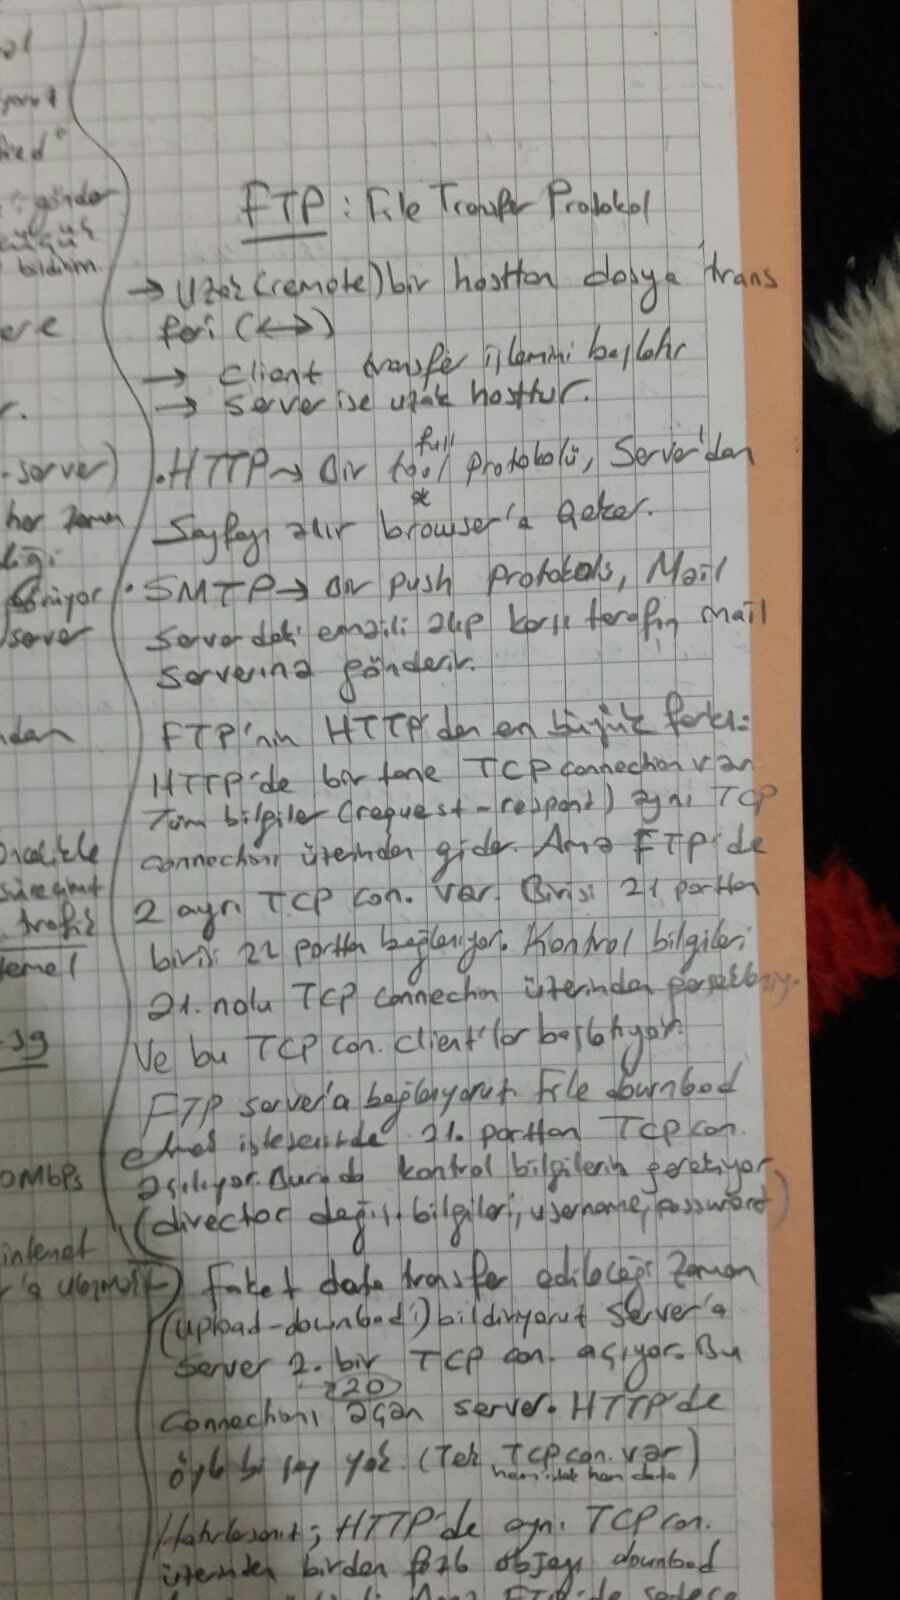 gönder
bildirim.
ere
r.
-server)
her zaman
server
ndan
trafik
temel
-19
0Mbps
internet
FTP : File Transfer Protokol
→ Uzak (remote) bir hosttan dosya trans
feri (↔)
→ Client transfer işlemini başlatır
→ Server ise uzak hosttur.
full
.HTTP → Bir protokolü, Server'dan
Sayfayı alır browser'a çeker.
. SMTP → Bir push protokols, Mail
Serverdaki emaili alıp karşı tarafın mail
serverına gönderir.
FTP'nin HTTP'den en büyük farkı:
HTTP'de bir tane TCP connection var
Tüm bilgiler (request - respond) aynı TCP
connection üzerinden gider. Ama FTP'de
2 ayrı TCP con. var. Birisi 21 porttan
birisi 22 porttan bağlanıyor. Kontrol bilgileri
21. nolu TCP connection üzerinden
Ve bu TCP con. client'lar başlatıyor.
FTP server'a bağlanıyoruz. File download
etmek istesekte 21. porttan TCP con.
açılıyor. Burada kontrol bilgilerin gerekiyor
(director değiş. bilgileri, username, password)
Fakat data transfer edileceği zaman
(upload-download) bildiriyoruz server'a
Server 2. bir TCP con. açıyor. Bu
(20)
connectionı açan server. HTTP'de
öyle bi şey yok. (Tek TCP con. var)
hem istek hem data
Hatırlarsanız; HTTP'de aynı TCP con.
üzerinden birden fazla objeyi download
Ama FTP'de sadece